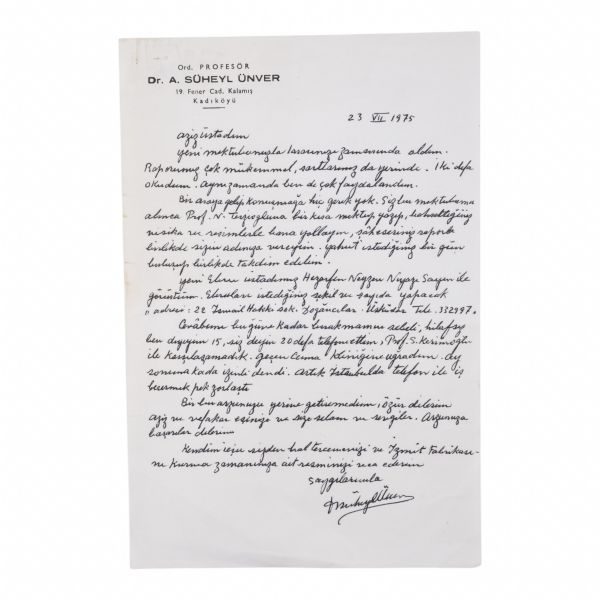 Ord. PROFESÖR
Dr. A. SÜHEYL ÜNVER
19. Fener Cad. Kalamış
Kadıköyü
23 VII 1975
aziz üstadım
yeni mektubunuzla zamanında aldım.
Raporunuz çok mükemmel, şartlarınız da yerinde. İki defa
okudum. Aynı zamanda ben de çok faydalandım.
Bir araya gelip konuşmağa hiç gerek yok. Siz bu mektubumu
alınca Prof. N. Terzioğluna bir kısa mektup yazıp, bahsettiğiniz
vesika ve resimlerle bana yollayın, şaheseriniz raporla
birlikde sizin adınıza vereyim. yahut istediğiniz bir gün
buluşup birlikde takdim edelim.
yeni Ebru üstadımız Hezarfen Neyzen Niyazi Sayın ile
görüştüm. Ebruları istediğiniz şekil ve sayıda yapacak
" adresi: 22 İsmail Hakkı Sok. Doğancılar. Üsküdar Tele. 332997.
Cevabımı bu güne kadar bırakmamın sebebi,
ben diyeyim 15, siz deyin 20 defa telefon ettim, Prof. S. Kerimoğlu
ile karşılaşamadık. Geçen Cuma kliniğine uğradım. Ay
sonuna kadar izinli dendi. Artık İstanbulda telefon ile iş
becermek pek zorlaştı
Bir bu arzunuzu yerine getiremedim, özür dilerim
aziz ve vefakar eşinize ve size selam ve sevgiler. Arzunuza
başarılar dilerim
Kendim için sizden hal tercemenizi ve İzmit Fabrikası-
nı kurma zamanınıza ait resminizi rica ederim
Saygılarımla
Süheyl Ünver